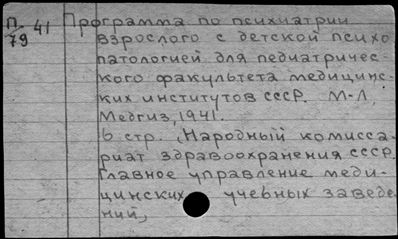 П 41 Программа по психиатрии
79 взрослого с детской психо
патологией для педиатричес-
кого факультета медицинс-
ких институтов СССР. М-Л,
Медгиз, 1941.
6 стр. (Народный комисса-
риат здравоохранения СССР.
Главное управление меди-
цинских учебных заведе-
ний,